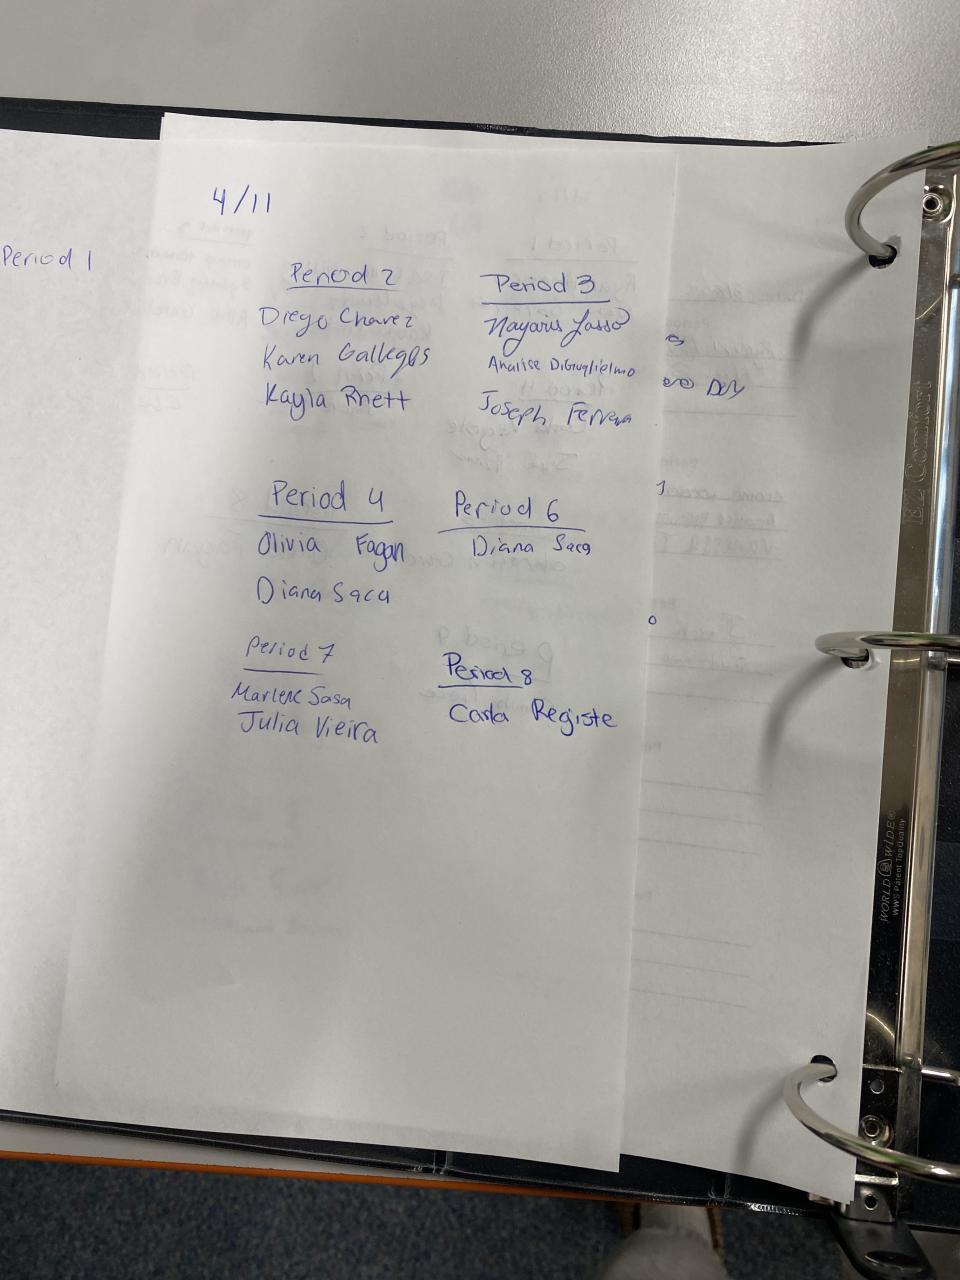 4/11
Period 1
Period 2
Diego Chavez
Karen Gallegos
Kayla Rhett
Period 3
Nayaris Lasso
Analise DiGuglielmo
Joseph Ferrera
Period 4
Olivia Fagan
Diana Saca
Period 6
Diana Saca
Period 7
Marlene Sasa
Julia Vieira
Period 8
Carla Registe
EZ Comfort
WORLD WIDE®
WWS Patent TopQuality